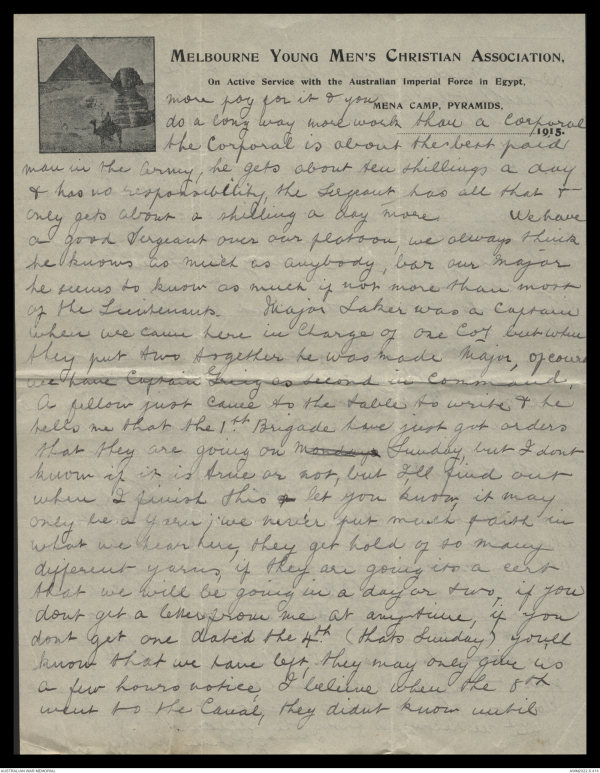 MELBOURNE YOUNG MEN'S CHRISTIAN ASSOCIATION,
On Active Service with the Australian Imperial Force in Egypt,
MENA CAMP, PYRAMIDS,
1915.
more pay for it & you
do a long way more work than a Corporal
the Corporal is about the best paid
man in the Army, he gets about ten shillings a day
& has no responsibility, the Sergeant has all that &
only gets about a shilling a day more. We have
a good Sergeant over our platoon, we always think
he knows as much as anybody, bar our Major
he seems to know as much if not more than most
of the Lieutenants. Major Laker was a Captain
when we came here in Charge of one Coy but when
they put two together he was made Major, of course
we have Captain Greig as second in command.
A fellow just came to the table to write & he
tells me that the 1st Brigade have just got orders
that they are going on Monday Sunday, but I dont
know if it is true or not, but I'll find out
when I finish this & let you know, it may
only be a yarn; we never put much faith in
what we hear here, they get hold of so many
different yarns, if they are going its a cert
that we will be going in a day or two, if you
dont get a letter from me at anytime, if you
dont get one dated the 4th (thats Sunday) you'll
know that we have left, they may only give us
a few hours notice I believe when the 8th
went to the Canal, they didnt know until
AUSTRALIAN WAR MEMORIAL